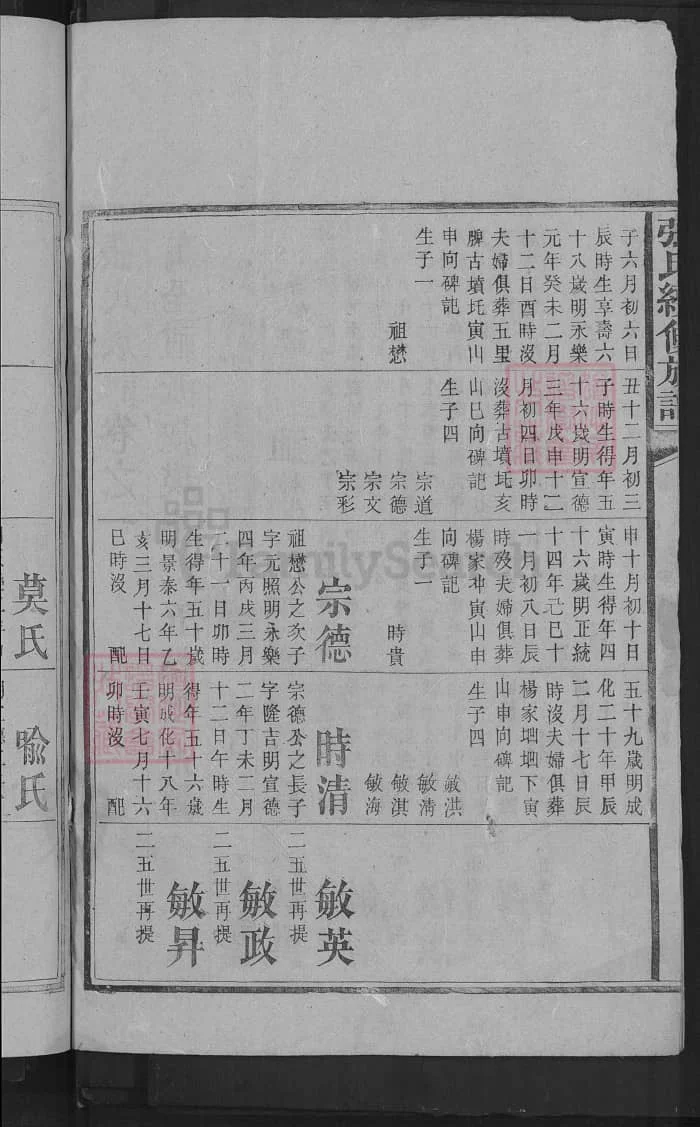 張氏續修族譜
子六月初六日
辰時生享壽六
十八歲明永樂
元年癸未二月
十二日酉時沒
夫婦俱葬五里
牌古墳圫寅山
申向碑記
生子一
祖懋
丑十二月初三
子時生得年五
十六歲明宣德
三年戊申十二
月初四日卯時
沒葬古墳圫亥
山巳向碑記
生子四
宗道
宗德
宗文
宗彩
申十月初十日
寅時生得年四
十六歲明正統
十四年己巳十
一月初八日辰
時歿夫婦俱葬
楊家冲寅山申
向碑記
生子一
時貴
宗德
祖懋公之次子
字元照明永樂
四年丙戌三月
二十一日卯時
生得年五十歲
明景泰六年乙
亥三月十七日
巳時沒　配
五十九歲明成
化二十年甲辰
二月十七日辰
時沒夫婦俱葬
楊家坳下寅
山申向碑記
生子四
敏洪
敏清
敏淇
敏海
時清
宗德公之長子
字隆吉明宣德
二年丁未二月
十二日午時生
得年五十六歲
明成化十八年
壬寅七月十六
卯時沒　配
敏英
二五世再提
敏政
二五世再提
敏昇
二五世再提
莫氏
喻氏
FamilySearch